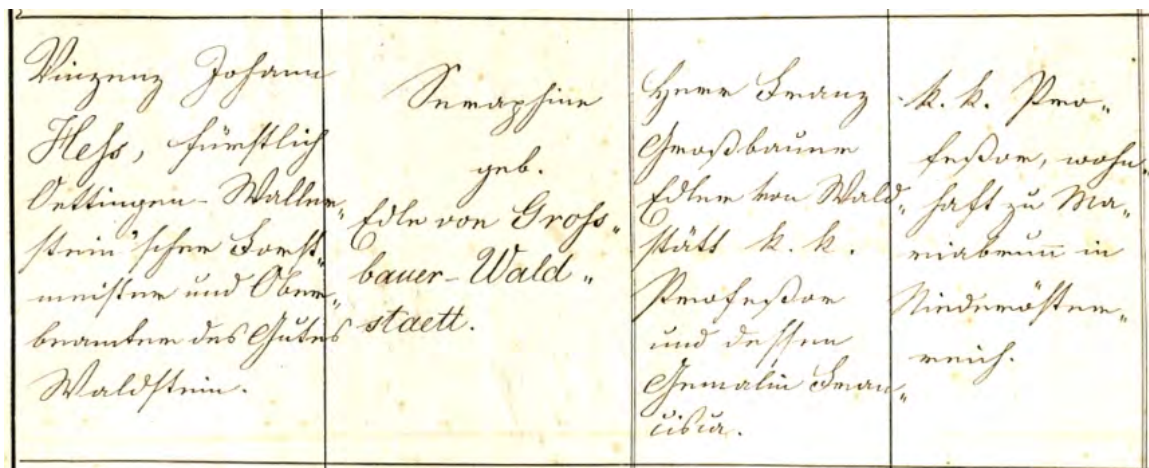 Vinzenz Johann
Heſs, fürstlich
Oettingen-Waller„
stein'scher Forst„
meister und Ober„
beamter des Gutes
Waldstein.
Seraphine
geb.
Edle von Groſs„
bauer-Wald„
staett.
Herr Franz
Großbauer
Edler von Wald„
stätt k. k.
Profeßor
und dessen
Gemalin Fran„
cisca.
k. k. Pro„
feßor, wohn„
haft zu Ma„
riabrun̄ in
Niederöster„
reich.